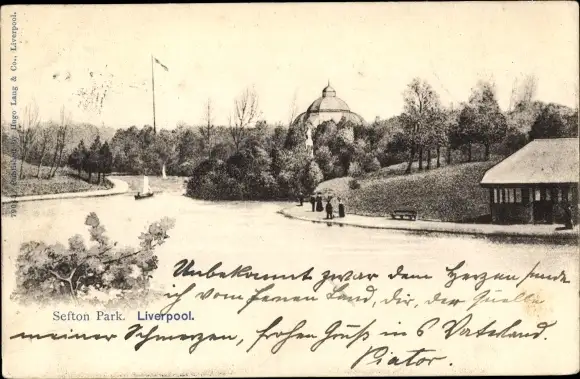 Hugo Lang & Co., Liverpool.
Sefton Park. Liverpool.
Unbekannt zwar dem Herzen sende
ich vom fernen Land, Dir, der Quelle
meiner Schmerzen, frohen Gruß in's Vaterland.